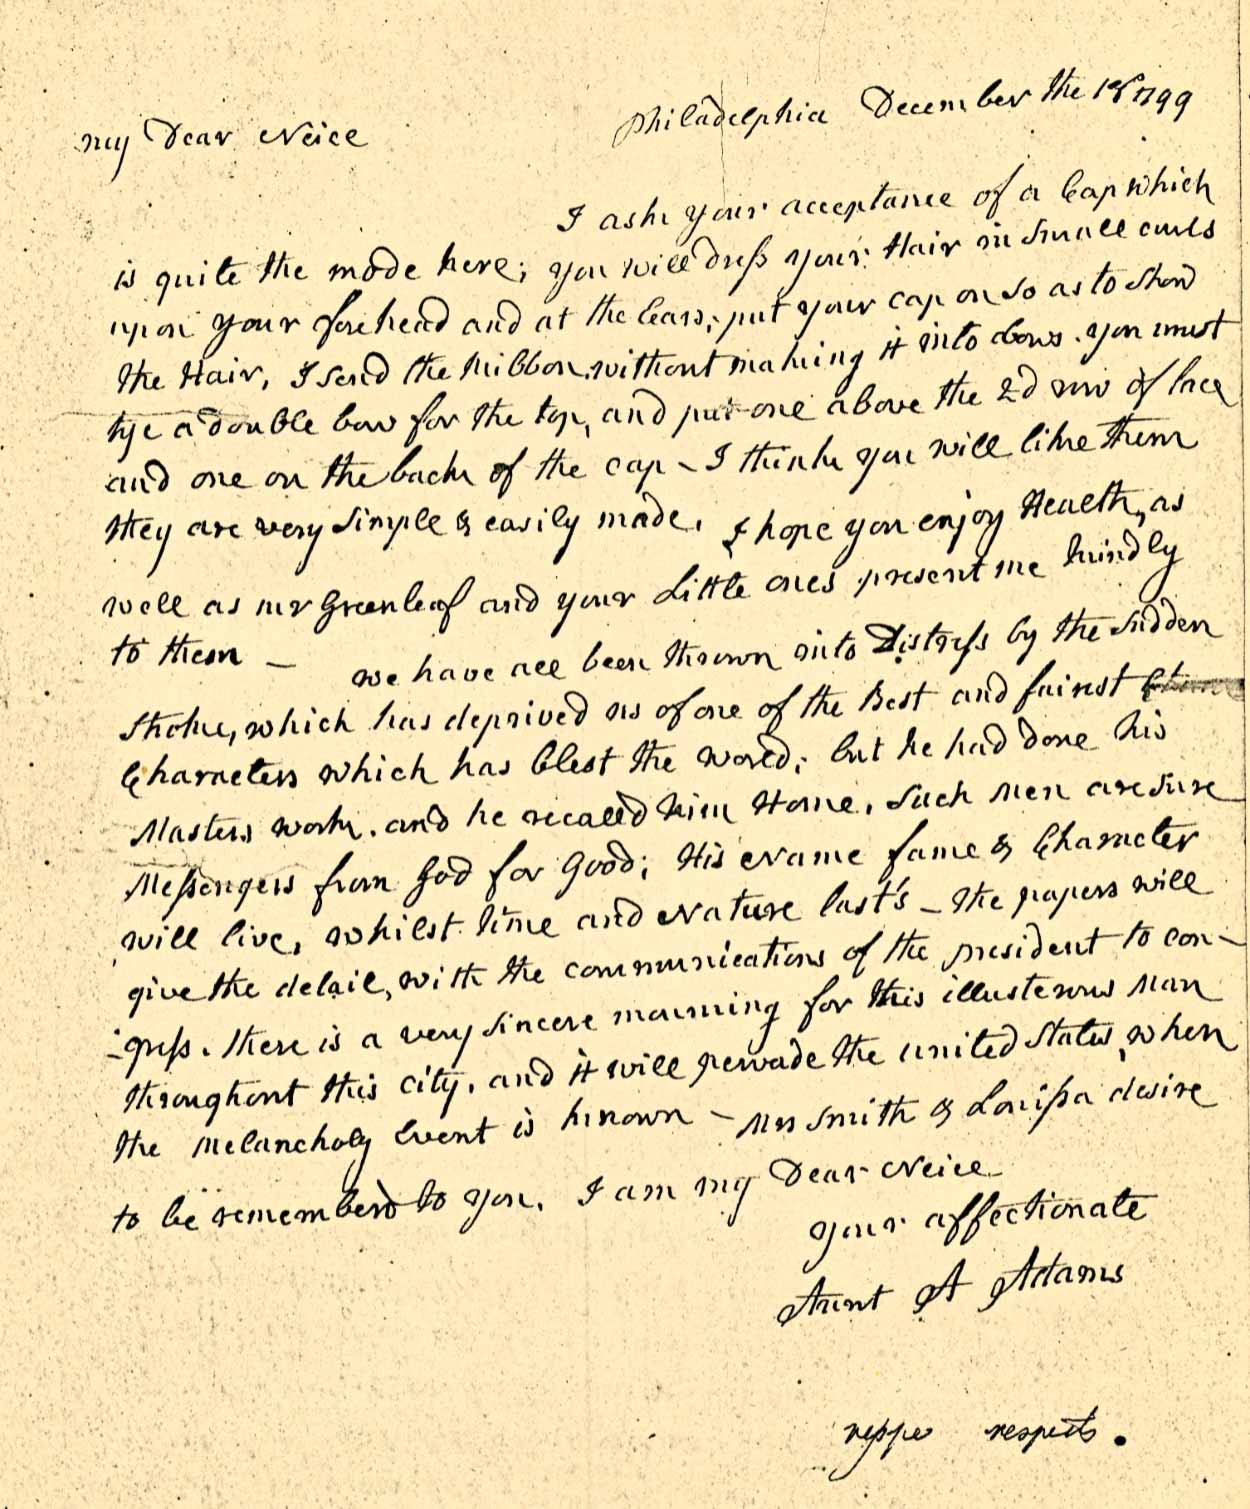 Philadelphia December the 18 1799
my Dear Neice
I ask your acceptance of a Cap which
is quite the mode here; you will dress your Hair in Small curls
upon your forehead and at the Ears; put your cap on so as to show
the Hair, I send the Ribbon, without making it into bows. you must
tye a double bow for the top, and put one above the 2d row of lace
and one on the back of the cap – I think you will like them
they are very simple & easily made. I hope you enjoy Health, as
well as mr Greenleaf and your Little ones present me kindly
to them – we have all been thrown into Distress by the Sudden
Stroke, which has deprived us of one of the Best and fairest
Characters which has blest the world; but he had done his
Masters work. and he recalld him Home. Such Men are sure
Messengers from God for Good; His Name fame & Character
will live, whilst time and Nature last's – the papers will
give the detail, with the communications of the president to con-
-gress. there is a very sincere mourning for this illusterous Man
throughout this city. and it will pervade the united States, when
the Melancholy Event is known – Mrs Smith & Louissa desire
to be rememberd to you. I am my Dear Neice
your affectionate
Aunt A Adams
respects.